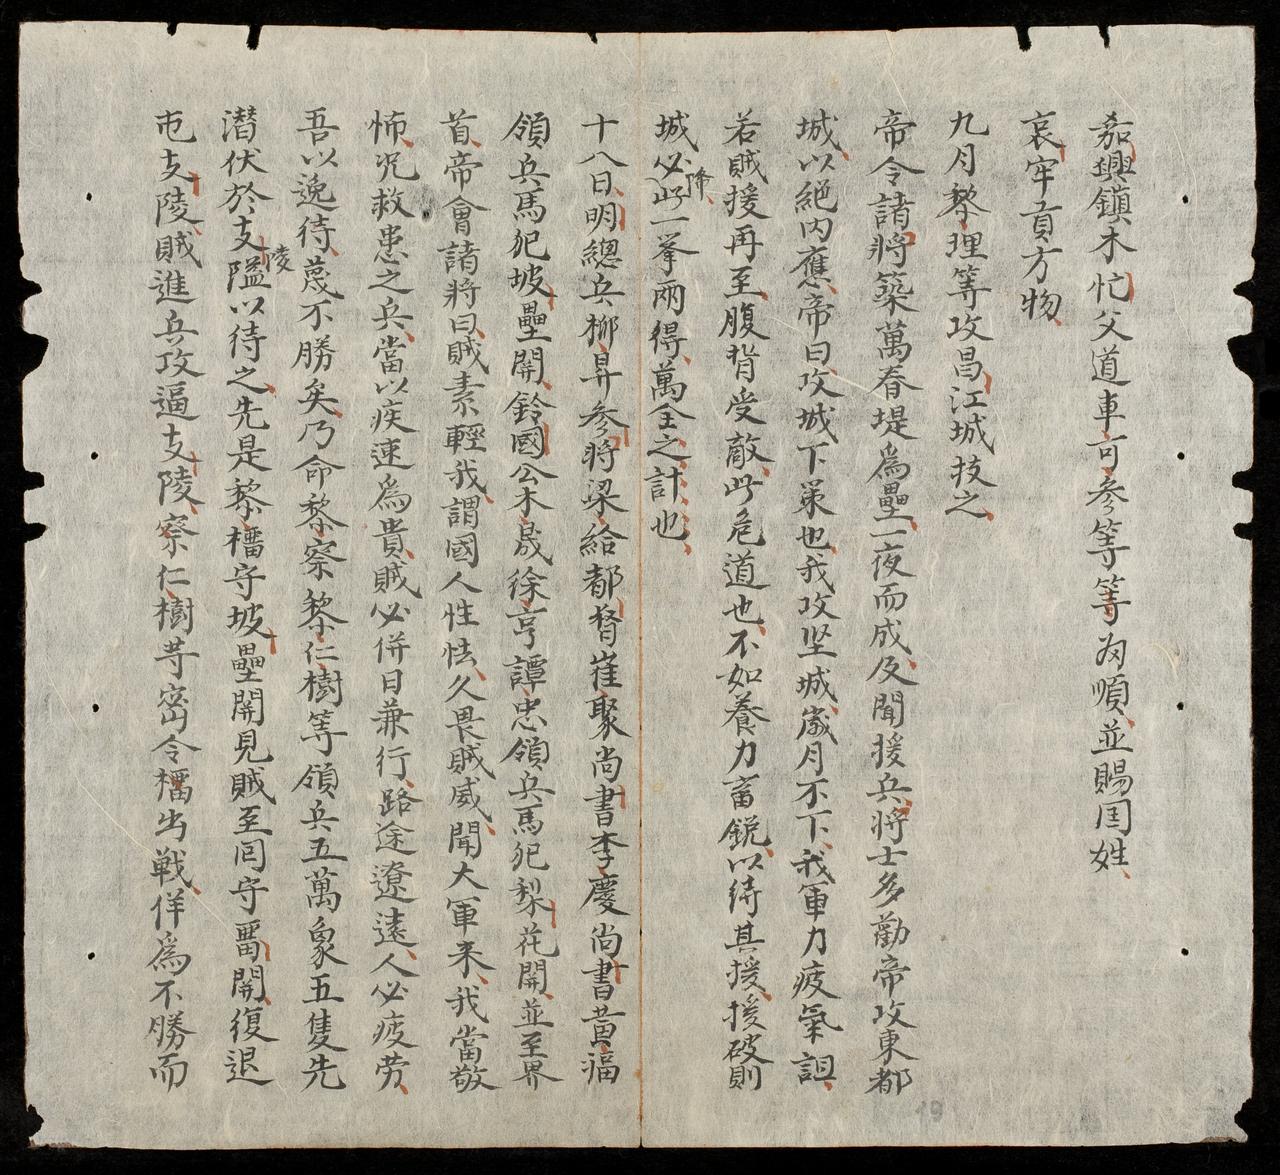 嘉興鎮木忙父道車可參等等为順並賜国姓
哀牢貢方物
九月黎理等攻昌江城技之
帝令諸將築萬春堤爲壘一夜而成及聞援兵將士多勸帝攻東都
城以絕內應帝曰攻城下策也我攻坚城歲月不下我軍力疲氣詛
若賊援再至腹背受敵此危道也不如養力畜銳以待其援援破則
城必降此一挙兩得萬全之計也
十八日明總兵柳昇參將梁給都督崔聚尚書李慶尚書黃福
領兵馬犯坡壘開鈴國公木晟徐亨譚忠領兵馬犯梨花開並至界
首帝會諸將曰賊素輕我謂國人性怯久畏賊威聞大軍来我當敬
怖况救患之兵當以疾速爲貴賊必併日兼行路途遼遠人必疲劳
吾以逸待蔑不勝矣乃命黎察黎仁樹等領兵五萬象五隻先
潛伏於支陵隘以待之先是黎櫑守坡壘開見賊至囘守畱開復退
屯支陵賊進兵攻逼支陵察仁樹等密令櫑出戰佯爲不勝而